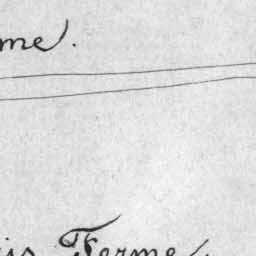 me.
is Ferme